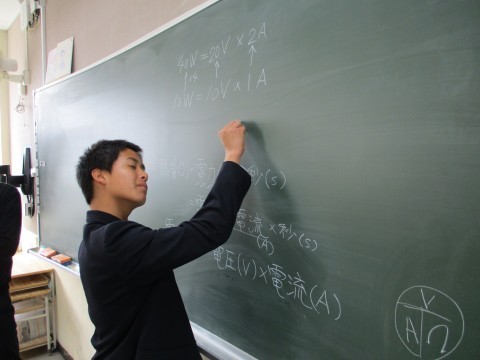 40W = 20V × 2A
10W = 10V × 1A
電 秒(s)
電流 × 秒(s)
(A)
電圧(V) × 電流(A)
V
A Ω